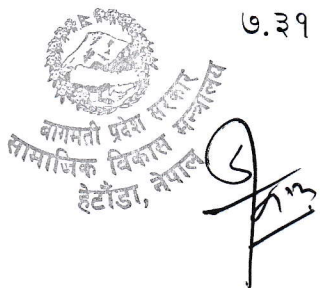 ७.३१
बागमती प्रदेश सरकार
सामाजिक विकास मन्त्रालय
हेटौंडा, नेपाल